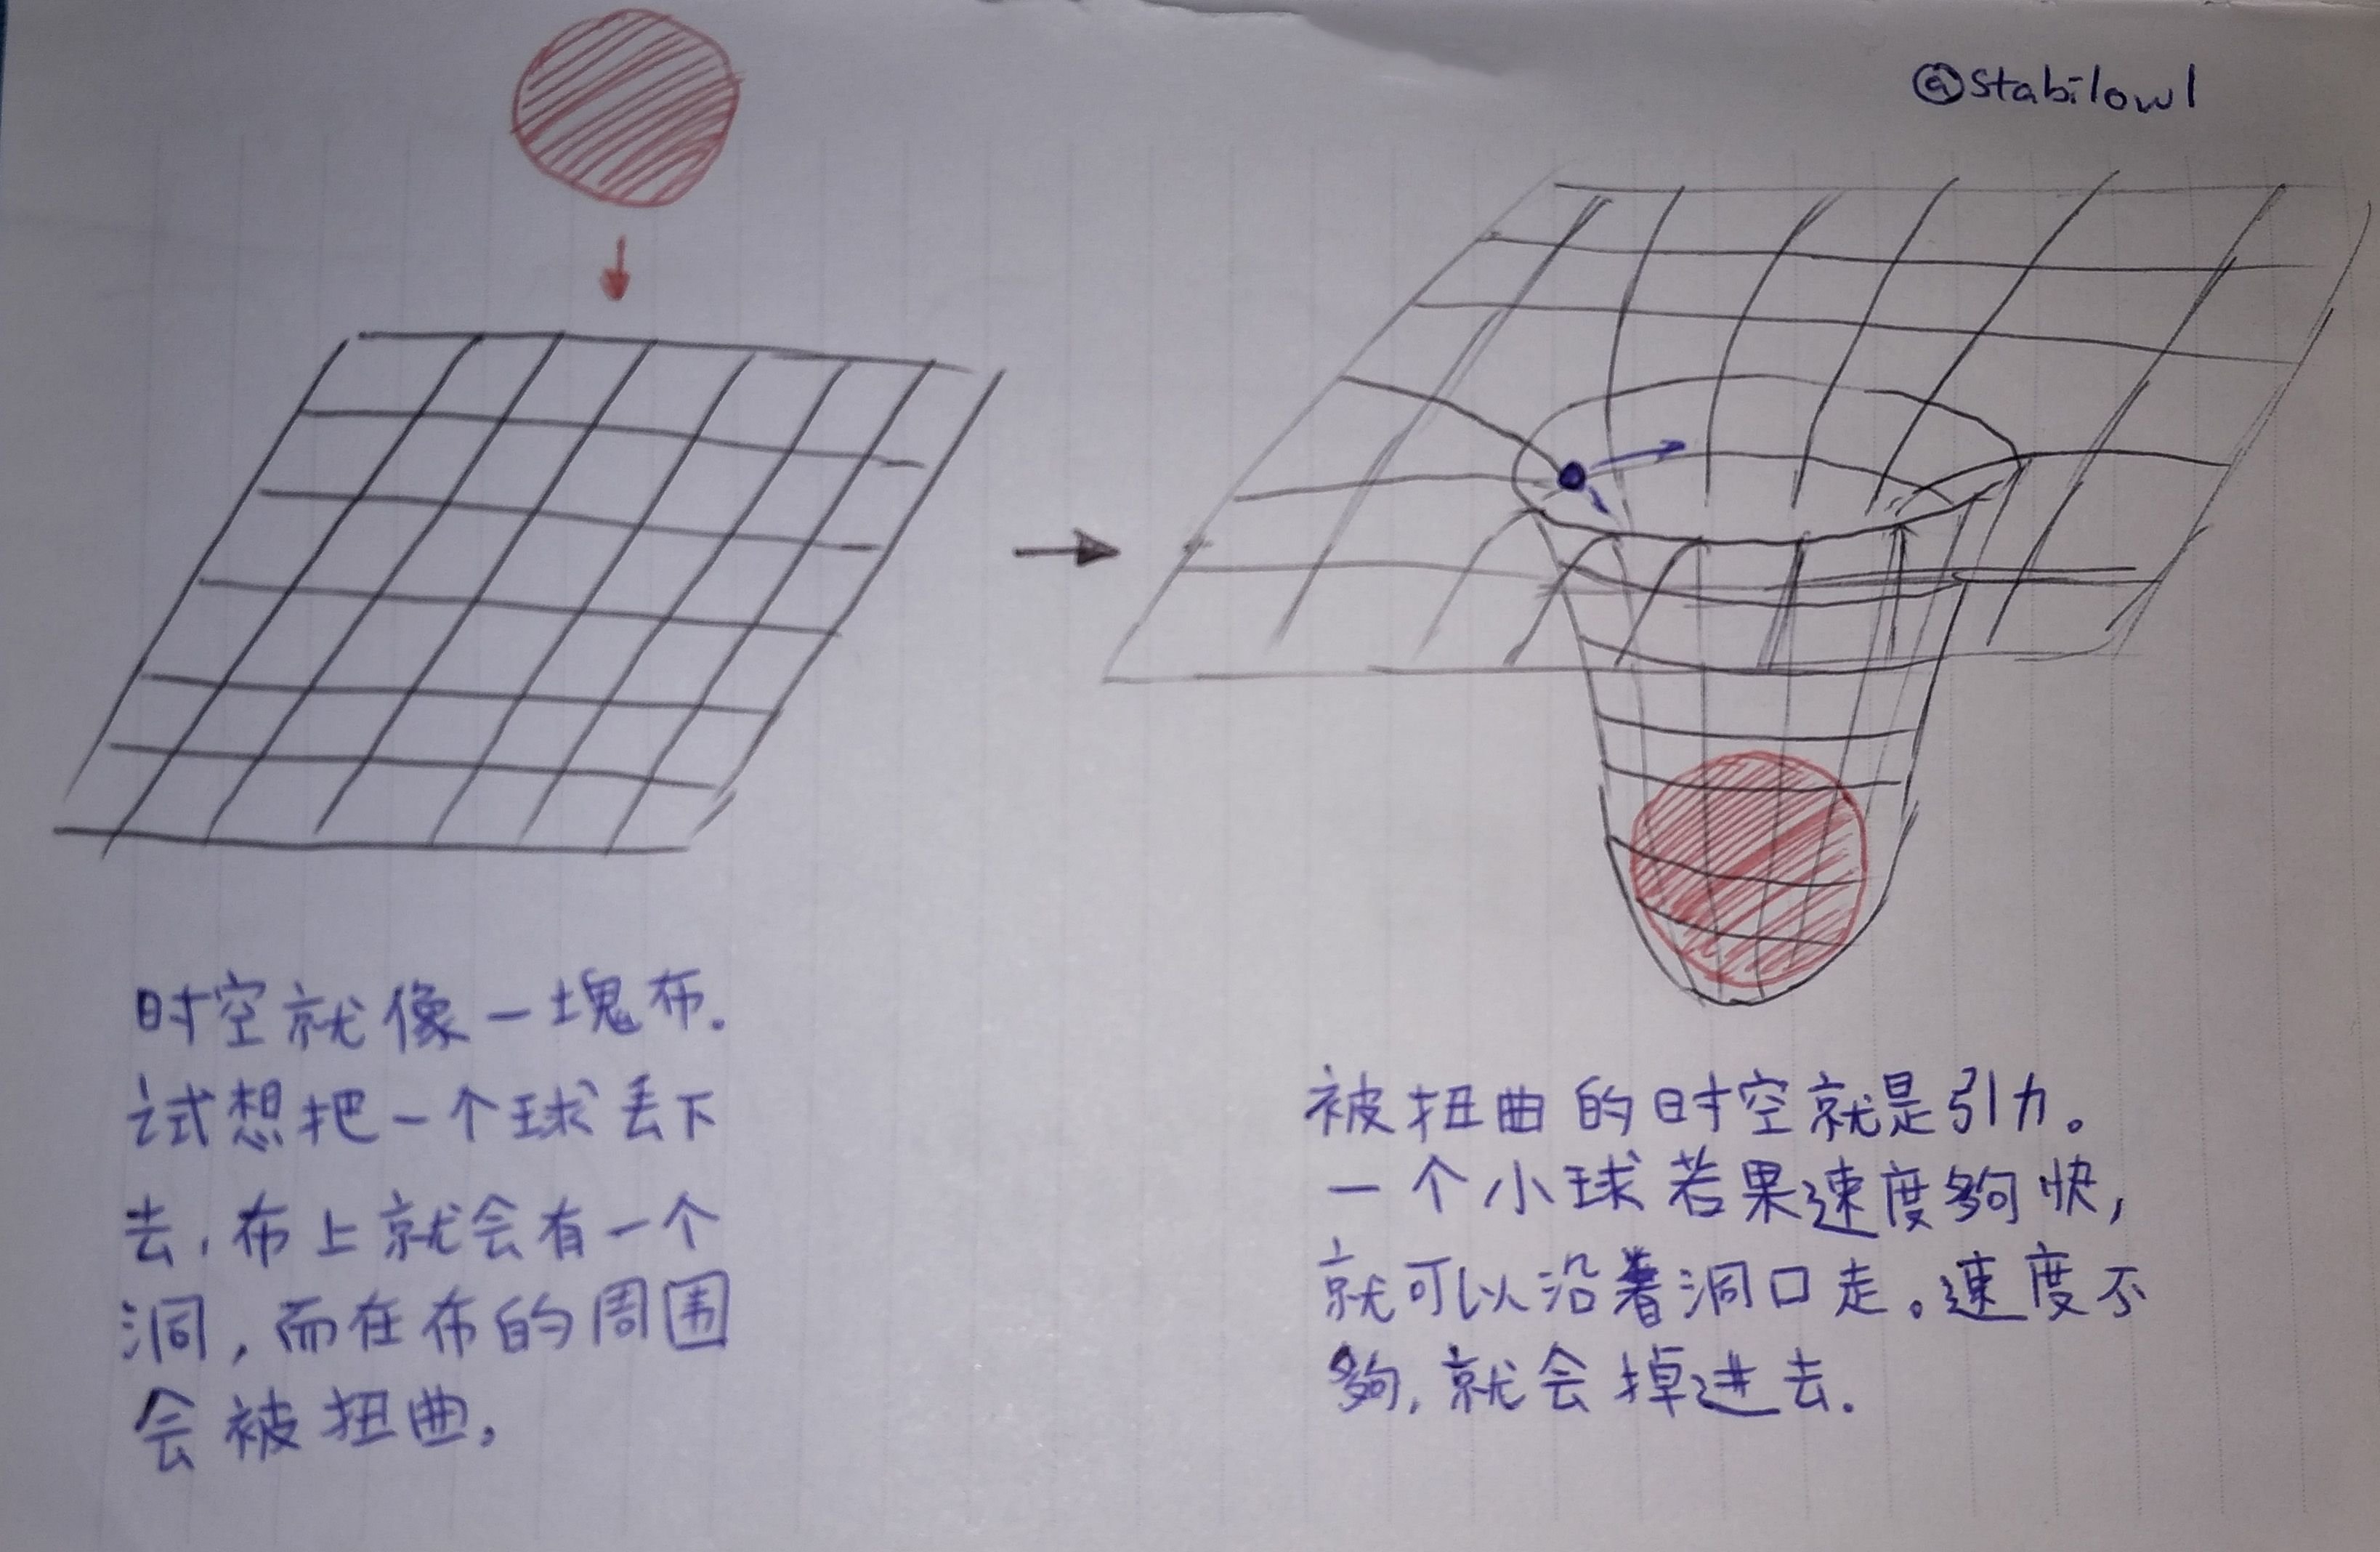 @stabilowl
时空就像一塊布.
试想把一个球丢下
去,布上就会有一个
洞,而在布的周围
会被扭曲,
被扭曲的时空就是引力。
一个小球若果速度夠快,
就可以沿着洞口走。速度不
夠,就会掉进去.